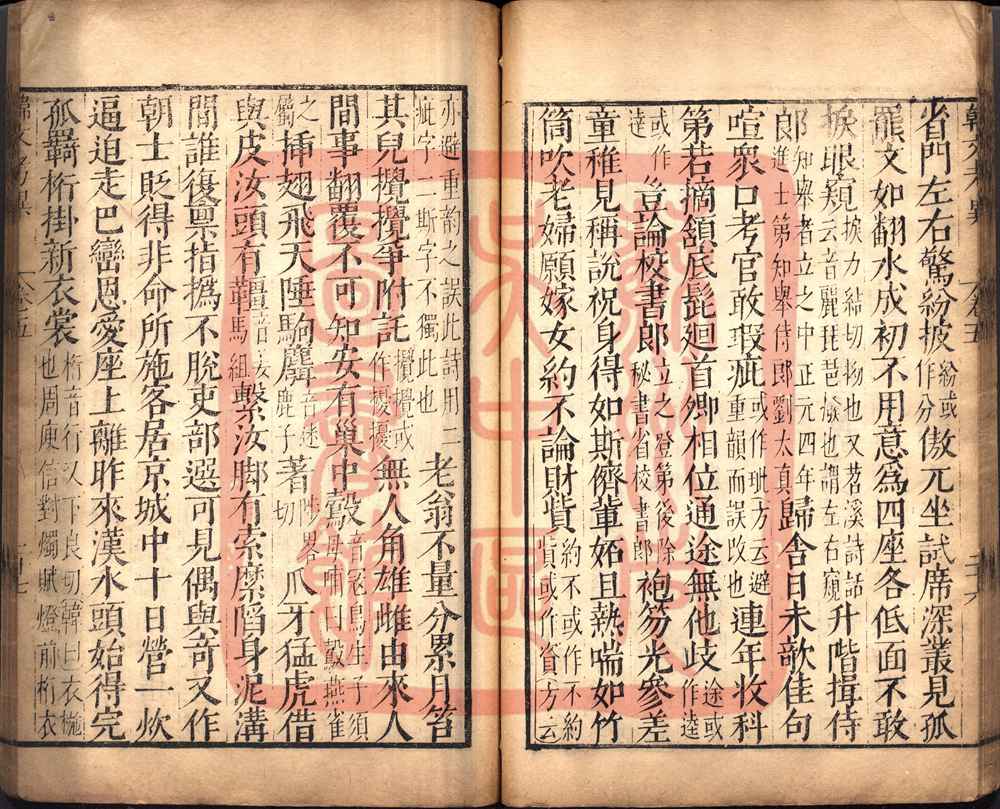 省門左右驚紛披紛或作分傲兀坐試席深叢見孤
羆文如翻水成初不用意為四座各低面不敢
捩眼窺捩力結切拗也又苕溪詩話蔡云音麗琵琶撥也謂左右窺升階揖侍
郎知舉者立之中正元四年進士第知舉侍郎劉太真歸舍日未欹佳句
喧眾口考官敢瑕疵疵或作玼方云避重韻而誤改也連年收科
第若摘頷底髭迴首卿相位通途無他歧途或作逵
或作達豈論校書郎立之登第後除秘書省校書郎袍笏光參差
童稚見稱說祝身得如斯儕輩妬且熱喘如竹
筒吹老婦願嫁女約不論財貲約不或作不約貲或作資方云
亦避重韵之誤此詩用二疵字二斯字不獨此也老翁不量分累月笞
其兒攪攪爭附託攪攪或作擾擾無人角雄雌由來人
間事翻覆不可知安有巢中鷇音冦鳥生子須母哺曰鷇燕雀
之屬插翅飛天陲駒麛音迷鹿子著陟略切爪牙猛虎借
與皮汝頭有韁音姜馬組繫汝脚有索縻陷身泥溝
間誰復禀指撝不脫吏部選可見偶與奇又作
朝士貶得非命所施客居京城中十日營一炊
逼迫走巴蠻恩愛座上離昨來漢水頭始得完
孤羇桁掛新衣裳桁音行又下良切韓曰衣椸也周庾信對燭賦燈前桁衣